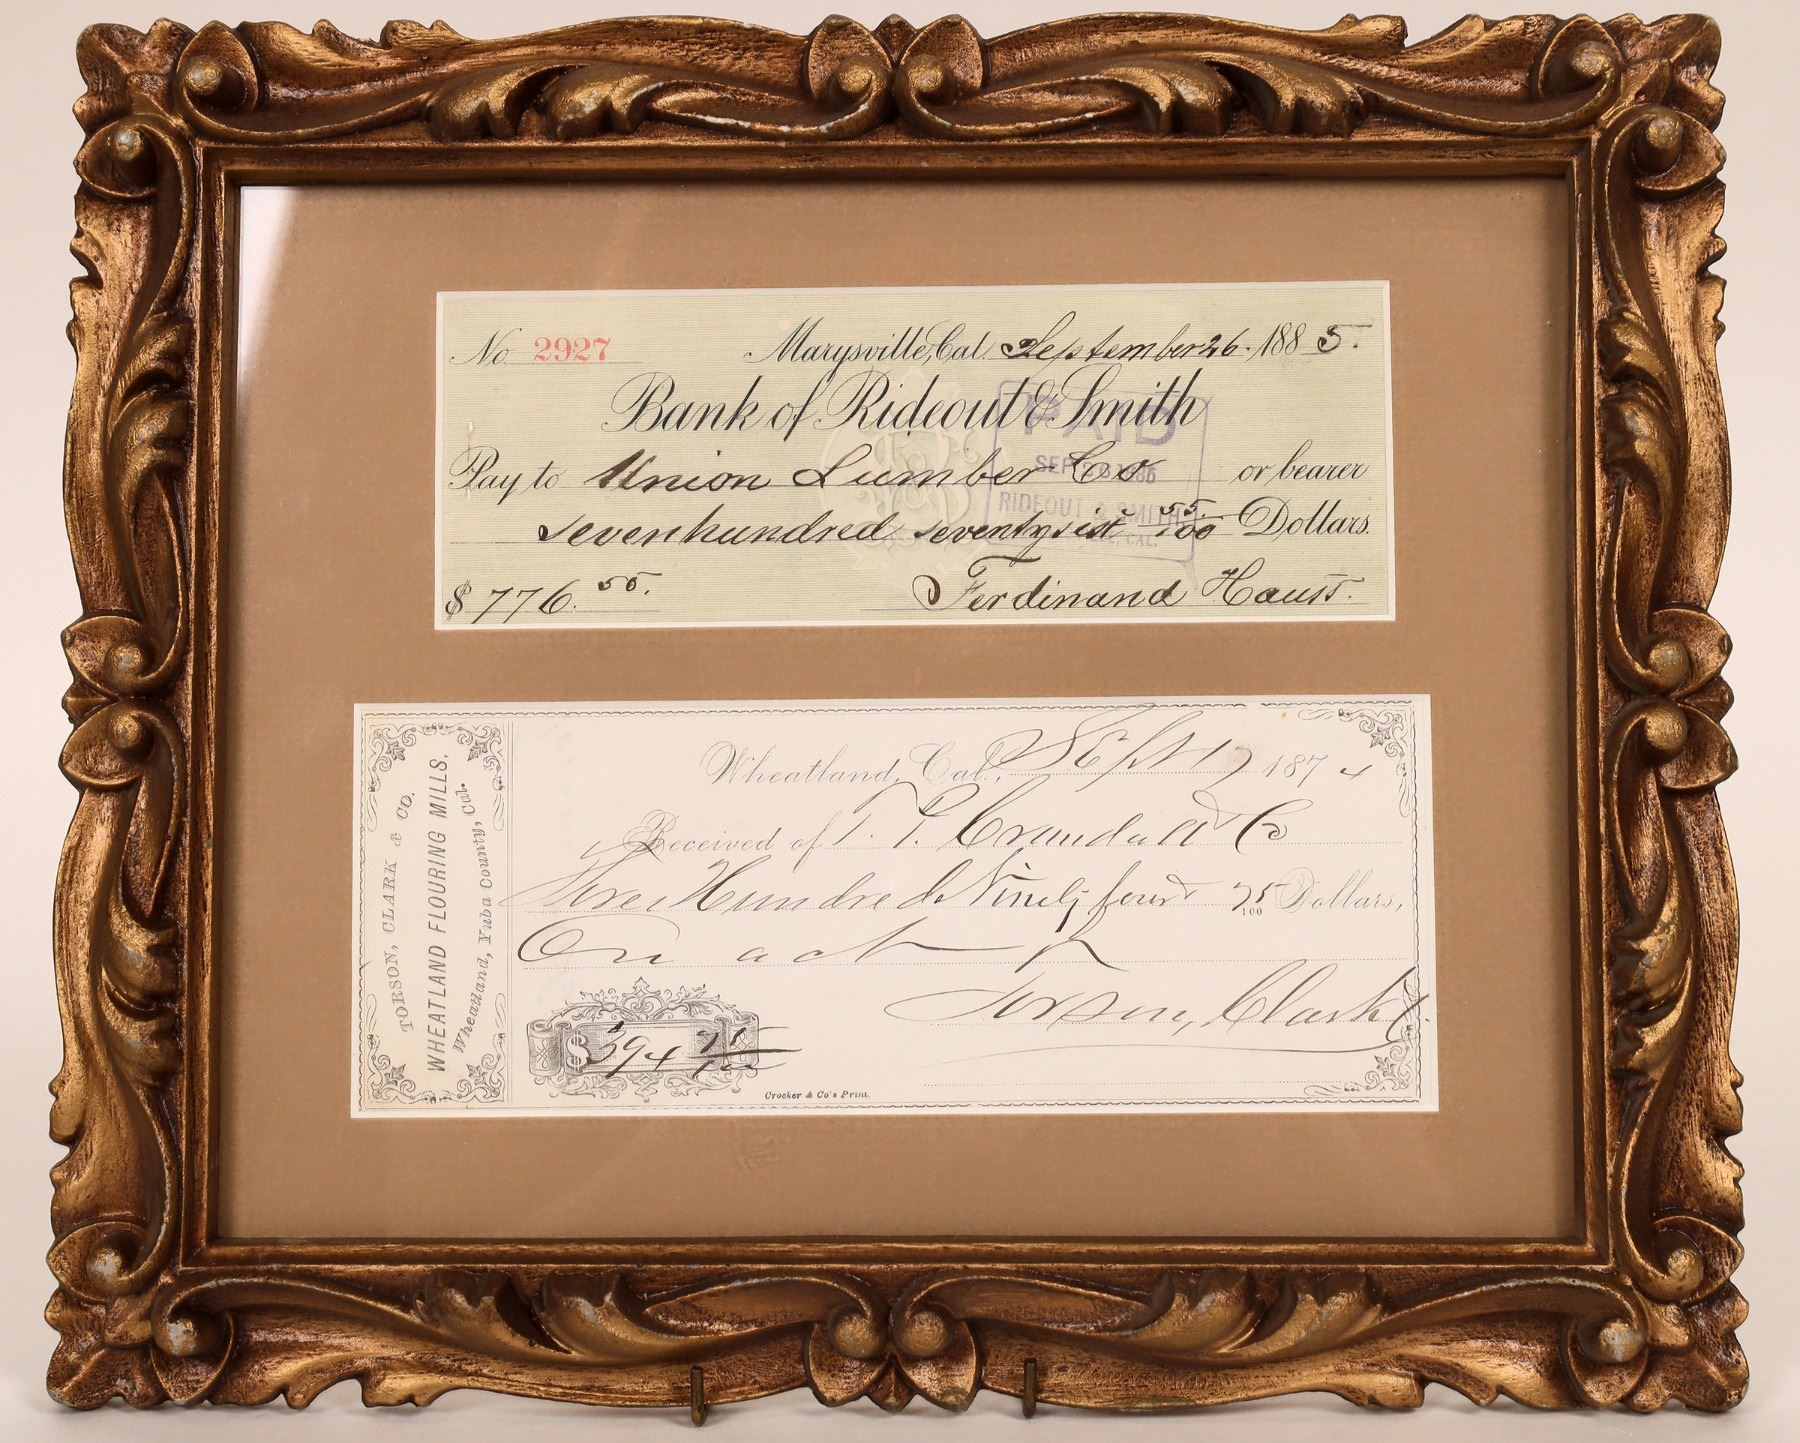 No. 2927 Marysville, Cal. September 26. 1885.
Bank of Rideout & Smith
PAID
Pay to Union Lumber Co or bearer
SEP
RIDEOUT & SMITH
CAL.
seven hundred seventy six 55/100 Dollars.
$ 776.55. Ferdinand Hauss.
TORSON, CLARK & CO.
WHEATLAND FLOURING MILLS,
Wheatland, Yuba County, Cal.
Wheatland, Cal., Sept 1874
Received of Crandall & Co
Three Hundred Ninety four & 75/100 Dollars,
On act
Torson, Clark & Co.
$ 394 75/100
Crocker & Co's Print.